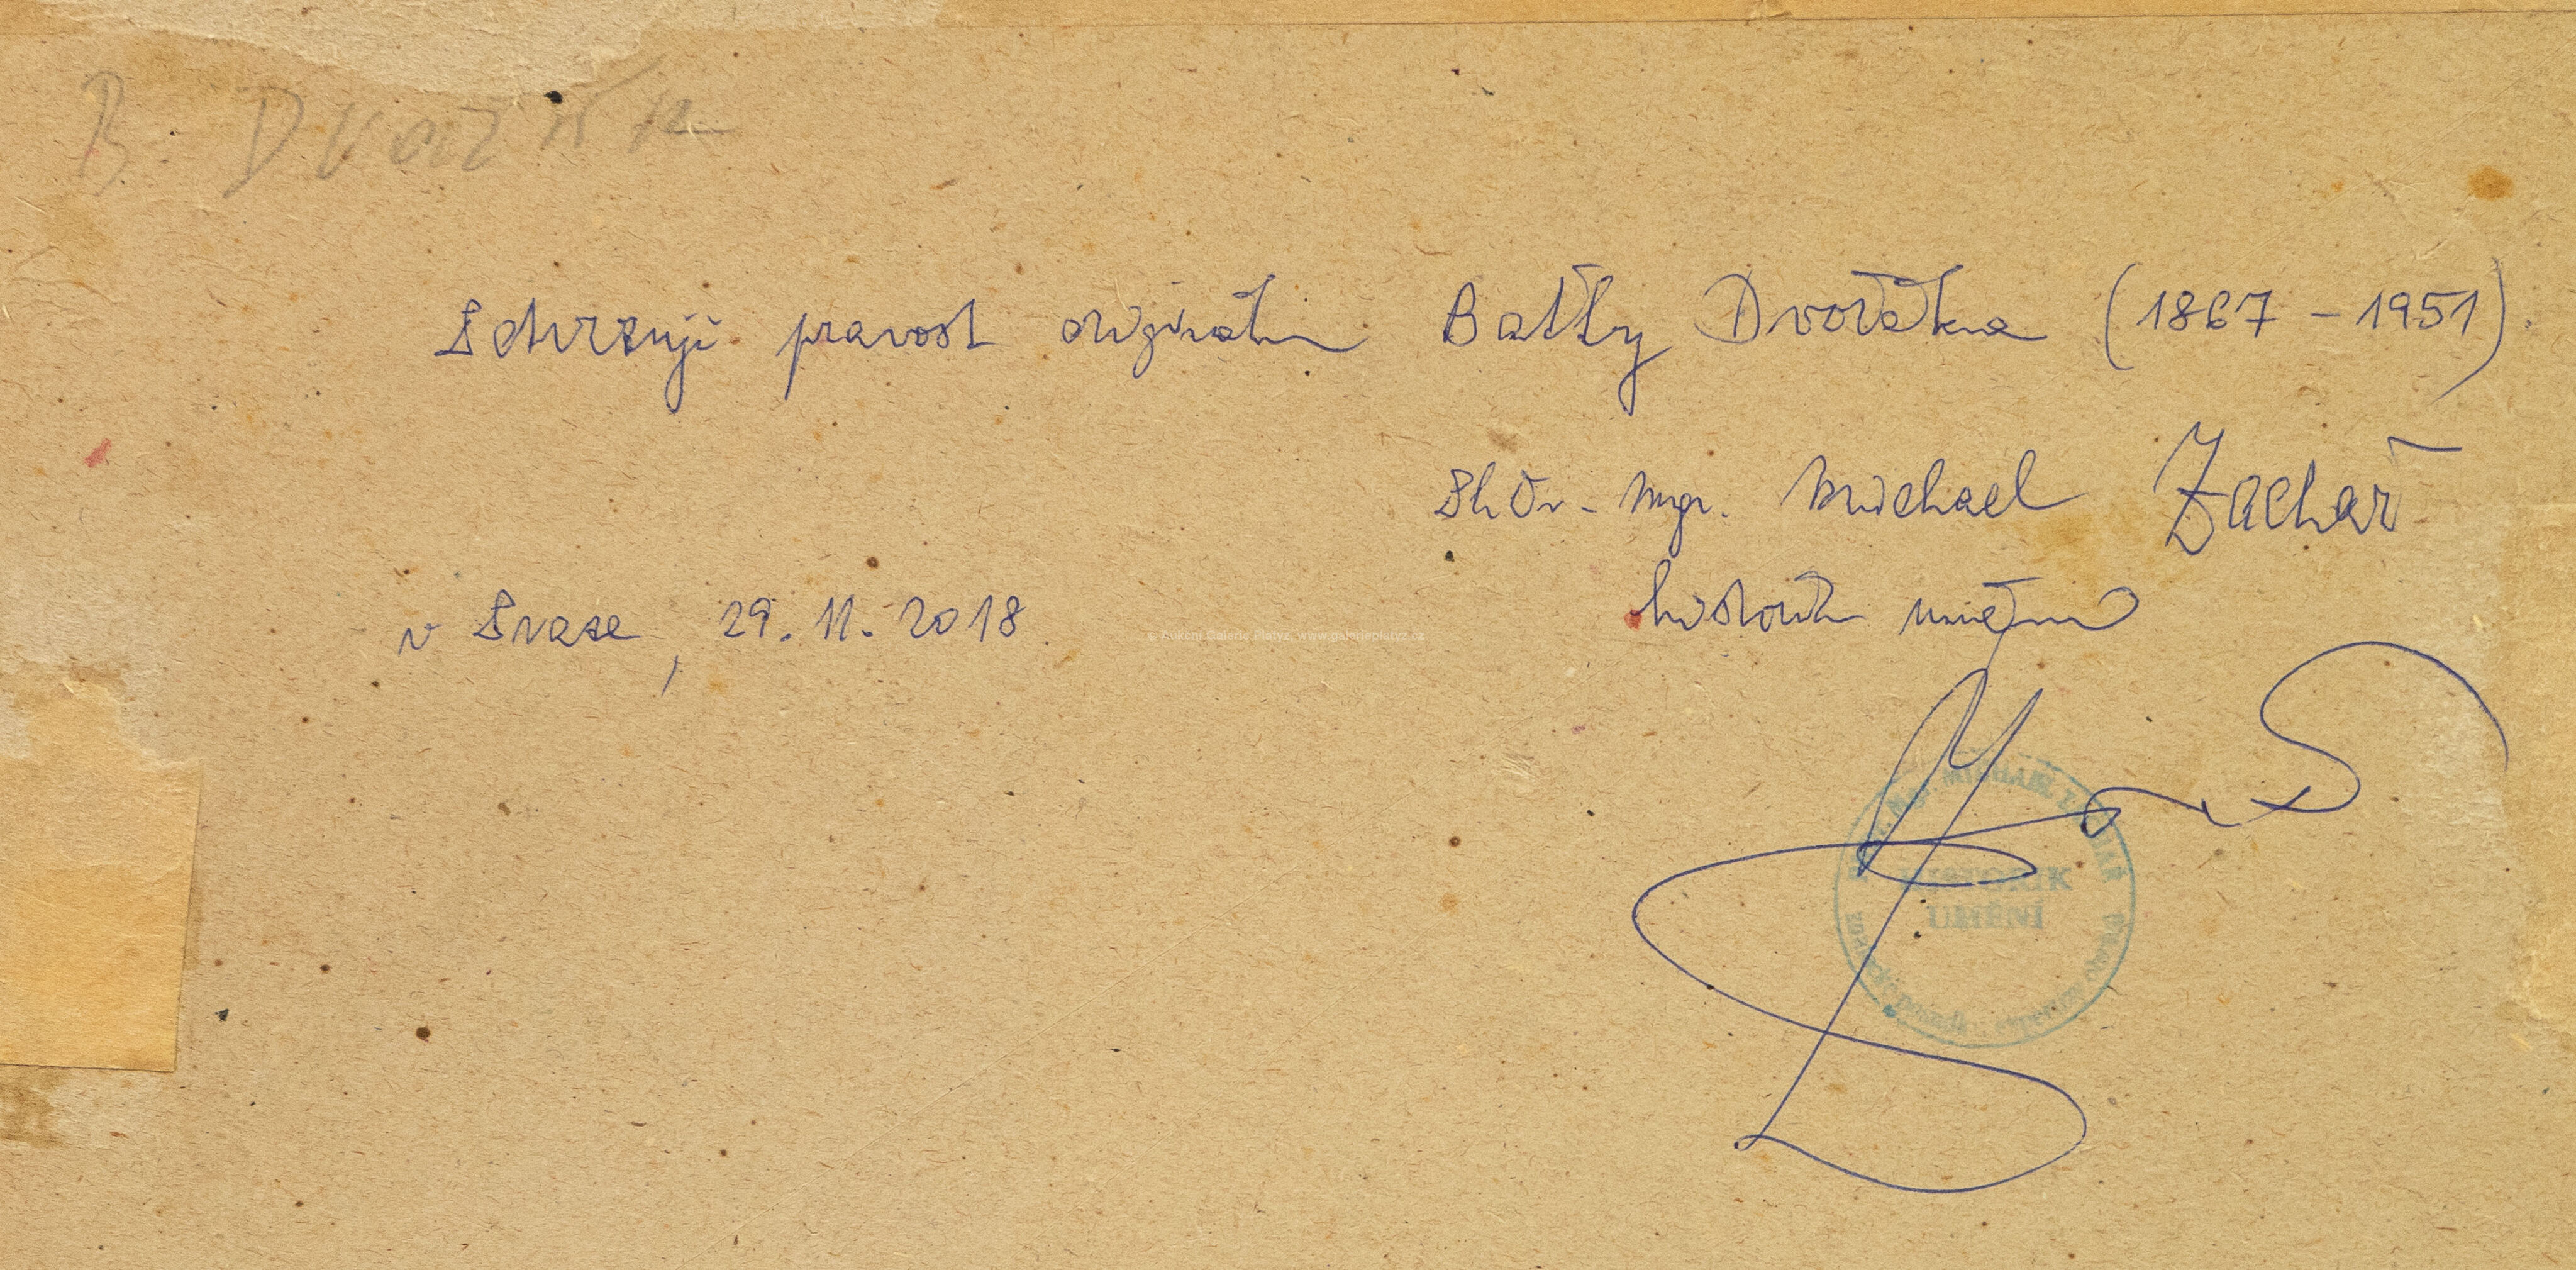 B. Dvořák
Potvrzuji pravost originálu Batty Dvořáka (1867 - 1951).
PhDr. Mgr. Michael Zachař
historik umění
v Praze, 29. 11. 2018
© Aukční Galerie Platýz, www.galerieplatyz.cz
HISTORIK
UMĚNÍ